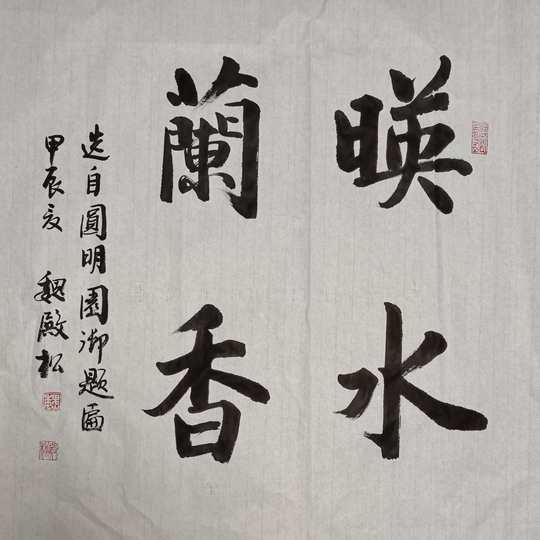 暎水
蘭香
选自圓明園御題匾
甲辰夏 魏殿松